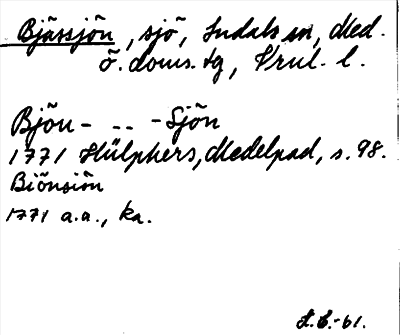 Bjässjön, sjö, Indals sn, Med.
ö. doms. tg, Vrnl. l.
Bjön- -- -Sjön
1771 Hülphers, Medelpad, s. 98.
Biönsiön
1771 a.a., ka.
-61.